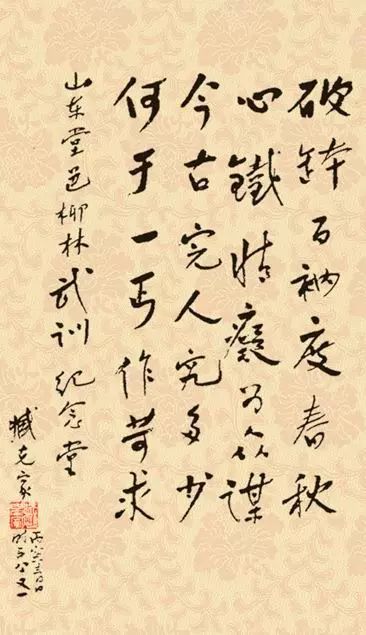 破缽百衲度春秋
心鐵情癡为众谋
今古完人究多少
何于一丐作苛求
山东堂邑柳林武训纪念堂
臧克家
丙寅